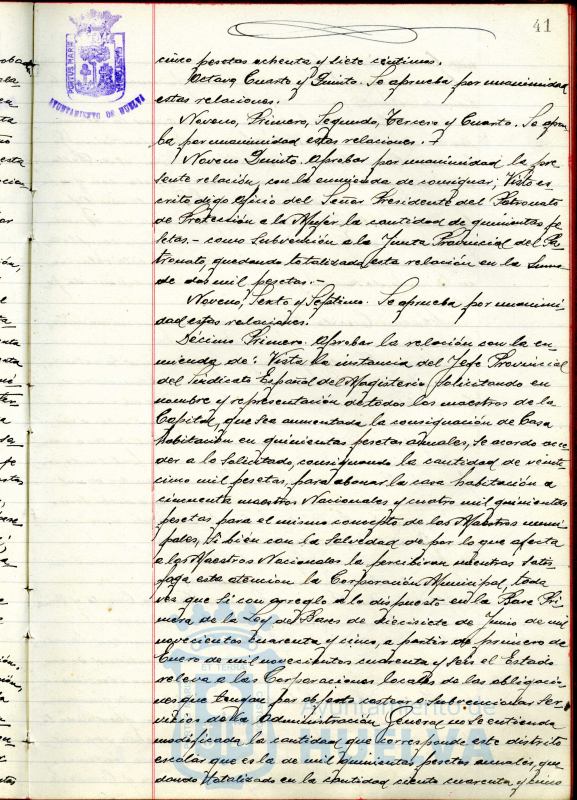 41
PORTUS MARIS
AYUNTAMIENTO DE HUELVA
cinco pesetas ochenta y siete céntimos.
Octavo, Cuarto y Quinto. Se aprueba por unanimidad
estas relaciones.
Noveno, Primero, Segundo, Tercero y Cuarto. Se aprue-
ba por unanimidad estas relaciones.-
Noveno Quinto. Aprobar por unanimidad la pre-
sente relación, con la enmienda de consignar; Visto es-
crito digo oficio del Señor Presidente del Patronato
de Protección a la Mujer la cantidad de quinientas pe-
setas.- como Subvención a la Junta Provincial del Pa-
tronato, quedando totalizada esta relación en la Suma
de dos mil pesetas.-
Noveno, Sexto y Séptimo. Se aprueba por unanimi-
dad estas relaciones.
Décimo Primero. Aprobar la relación con la en-
mienda de: Vista la instancia del Jefe Provincial
del Sindicato Español del Magisterio, solicitando en
nombre y representación de todos los maestros de la
Capital, que sea aumentada la consignación de Casa
habitación en quinientas pesetas anuales, se acordo acce-
der a lo solicitado, consignando la cantidad de veinte
cinco mil pesetas, para abonar la casa habitación a
cincuenta maestros Nacionales y cuatro mil quinientas
pesetas para el mismo concepto de los Maestros muni-
pales, si bién con la salvedad de por lo que afecta
a los Maestros Nacionales la percibiran mientras satis-
faga esta atención la Corporación Municipal, toda
vez que si con arreglo a lo dispuesto en la Base Pri-
mera de la Ley de Bases de diecisiete de Junio de mil
novecientos cuarenta y cinco, a partir de primero de
Enero de mil novecientos cuarenta y seis el Estado
releva a las Corporaciones locales de las obligacio-
nes que tengan por objeto costear o subvencionar Ser-
vicios de la Administración General no se entienda
modificada la cantidad que corresponde este distrito
escolar que es la de mil quinientas pesetas anuales, que-
dando totalizada en la cantidad ciento cuarenta y cinco
Ayuntamiento de
HUELVA